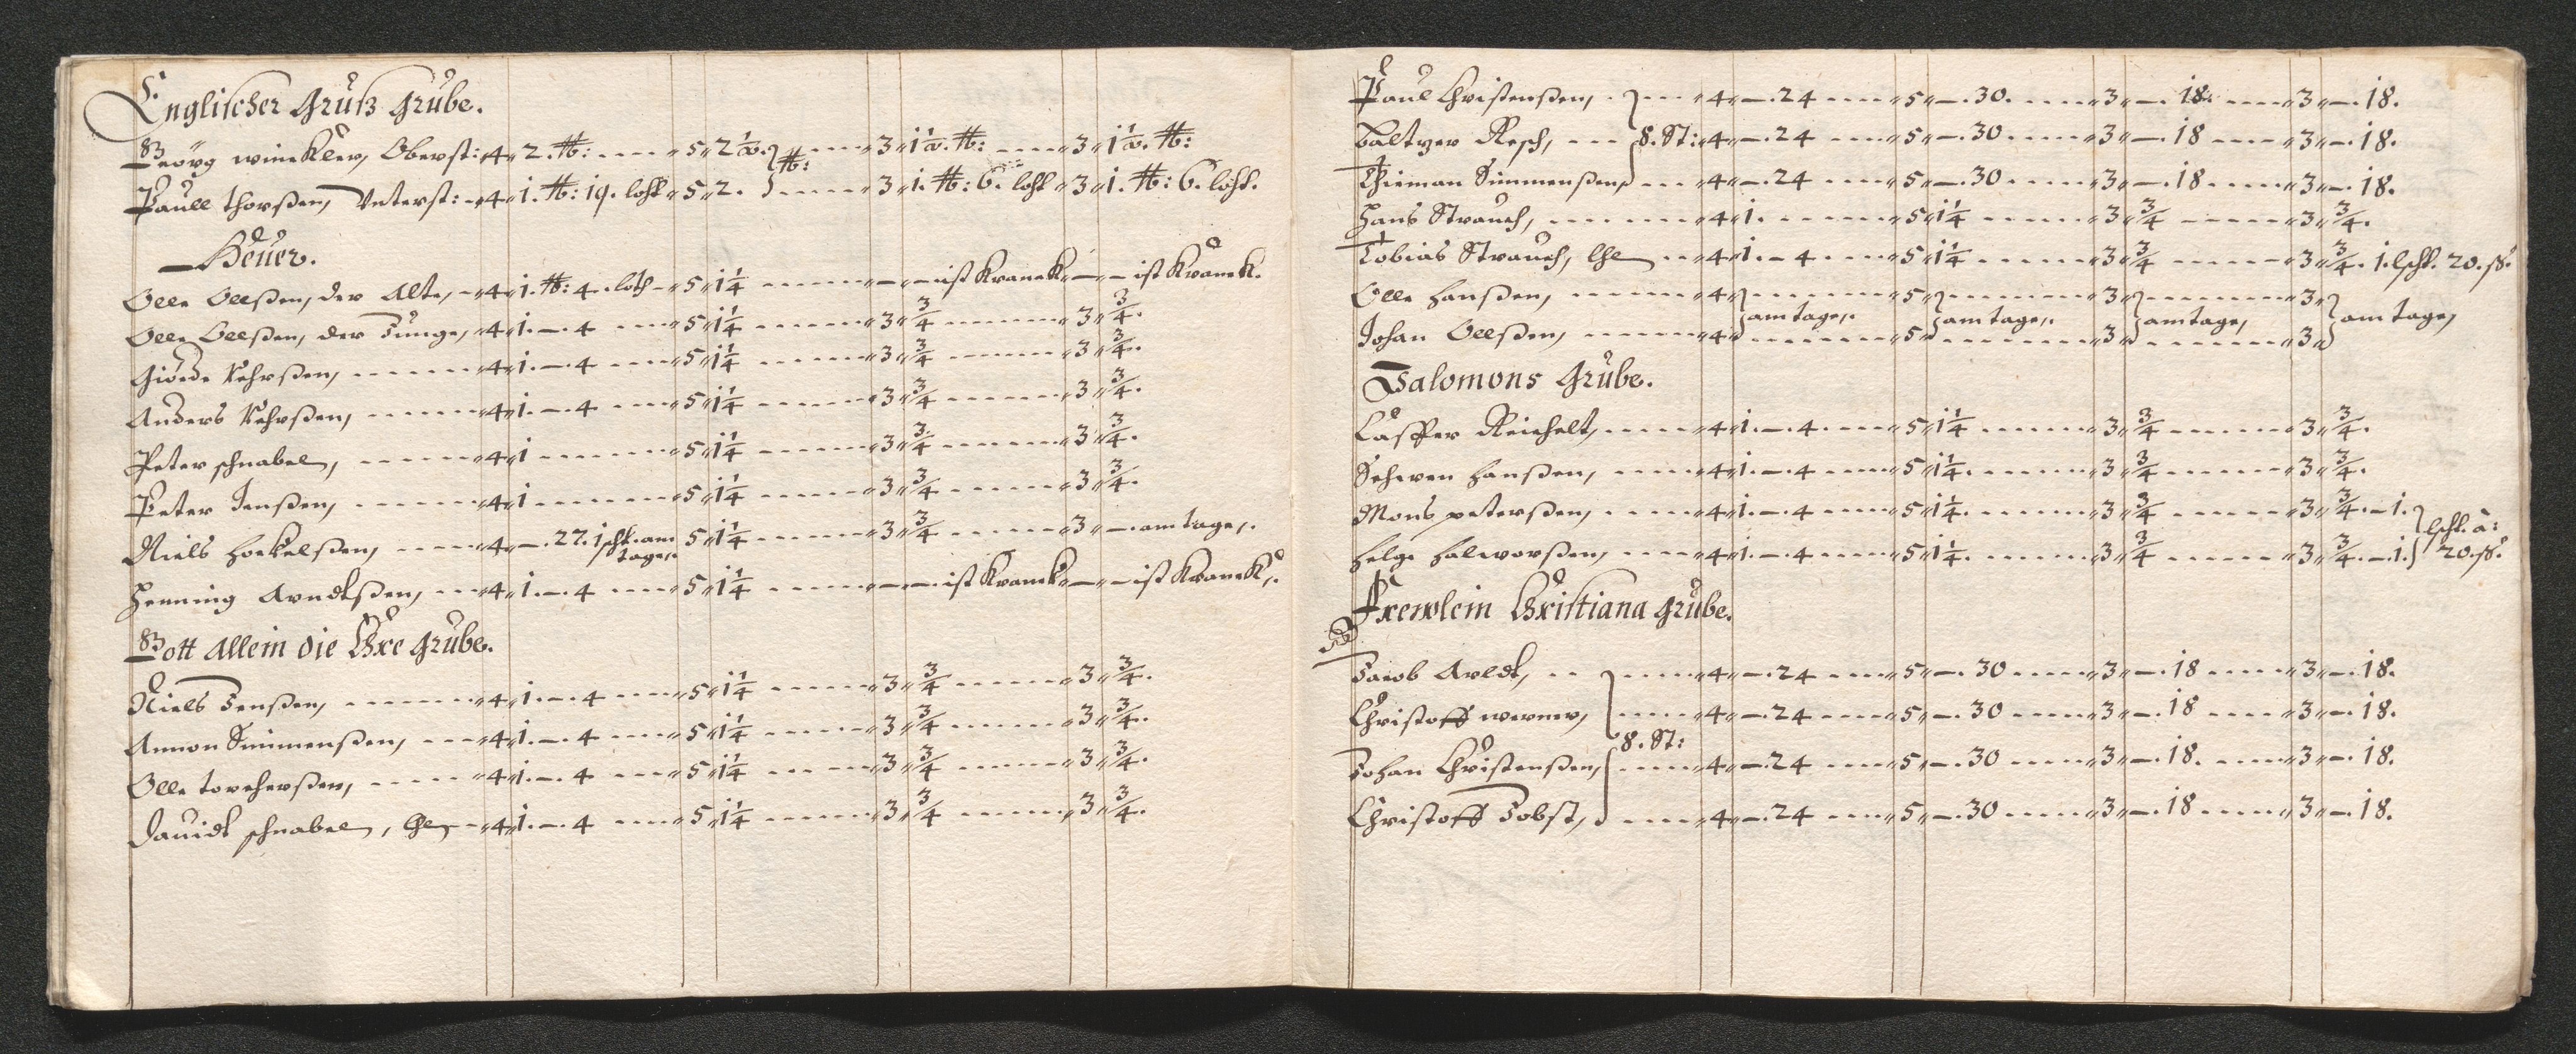 Englischer Gruß Grube.
Geörg winckler, Oberst: 4 2. ℔: 5 2½. 3 1½. ℔: 3 1½. ℔:
℔:
Paull thorßen, Vnterst: 4 1. ℔: 19. loht 5 2. 3 1. ℔: 6. loht 3 1. ℔: 6. loht.
Heuer.
Olle Ollßen, der Alte, 4 1. ℔: 4. loth 5 1¼ – – ist Kranck – – ist Kranck.
Olle Ollßen, der Junge, 4 1. – . 4 5 1¼ 3 ¾ 3 ¾.
Giörde 4 1. – . 4 5 1¼ 3 ¾ 3 ¾.
Anders 4 1. – . 4 5 1¼ 3 ¾ 3 ¾.
Peter schnabel, 4 1 5 1¼ 3 ¾ 3 ¾.
Peter Jenßen, 4 1 5 1¼ 3 ¾ 3 ¾.
Niels 4 – . 27. 1 scht. am tage. 5 1¼ 3 ¾ 3 – . am tage.
Henning Arndtßen, 4 1. – . 4 5 1¼ – – . ist Kranck – – ist Kranck.
Gott Allein die Ehre Grube.
Niels Jenßen, 4 1. – . 4 5 1¼ 3 ¾ 3 ¾.
Amon Simmenßen, 4 1. – . 4 5 1¼ 3 ¾ 3 ¾.
Olle torcherßen, 4 1. – . 4 5 1¼ 3 ¾ 3 ¾.
Dauidt schnabel, 4 1. – . 4 5 1¼ 3 ¾ 3 ¾.
Paul Christenßen, 4 – . 24 5 – . 30. 3 – . 18. 3 – . 18.
Baltzer Resch, 8. St: 4 – . 24 5 – . 30 3 – . 18 3 – . 18.
Thieman Simmenßen, 4 – . 24 5 – . 30 3 – . 18 3 – . 18.
Hans Strauch, 4 1. 5 1¼ 3 ¾ 3 ¾.
Tobias Strauch, 4 1. – . 4 5 1¼ 3 ¾ 3 ¾. 1. lscht. 20. ß.
Olle Hanßen, 4 5 3 3
am tage, am tage, am tage, am tage,
Johan Ollßen, 4 5 3 3
Salomons Grube.
Casper Reichelt, 4 1. – . 4 5 1¼ 3 ¾ 3 ¾.
Sehwen Hanßen, 4 1. – . 4 5 1¼. 3 ¾ 3 ¾.
Mons peterßen, 4 1. – . 4 5 1¼. 3 ¾ 3 ¾. – 1.
lscht. à:
Helge Halworßen, 4 1. – . 4 5 1¼. 3 ¾ 3 ¾. – 1. 20. ß.
Frewlein Christiana Grube.
Jacob Arldt, 4 – . 24 5 – . 30 3 – . 18 3 – . 18.
Christoff werner, 4 – . 24 5 – . 30 3 – . 18 3 – . 18.
8. St:
Johan Christenßen, 4 – . 24 5 – . 30 3 – . 18. 3 – . 18.
Christoff Jobst, 4 – . 24 5 – . 30 3 – . 18 3 – . 18.